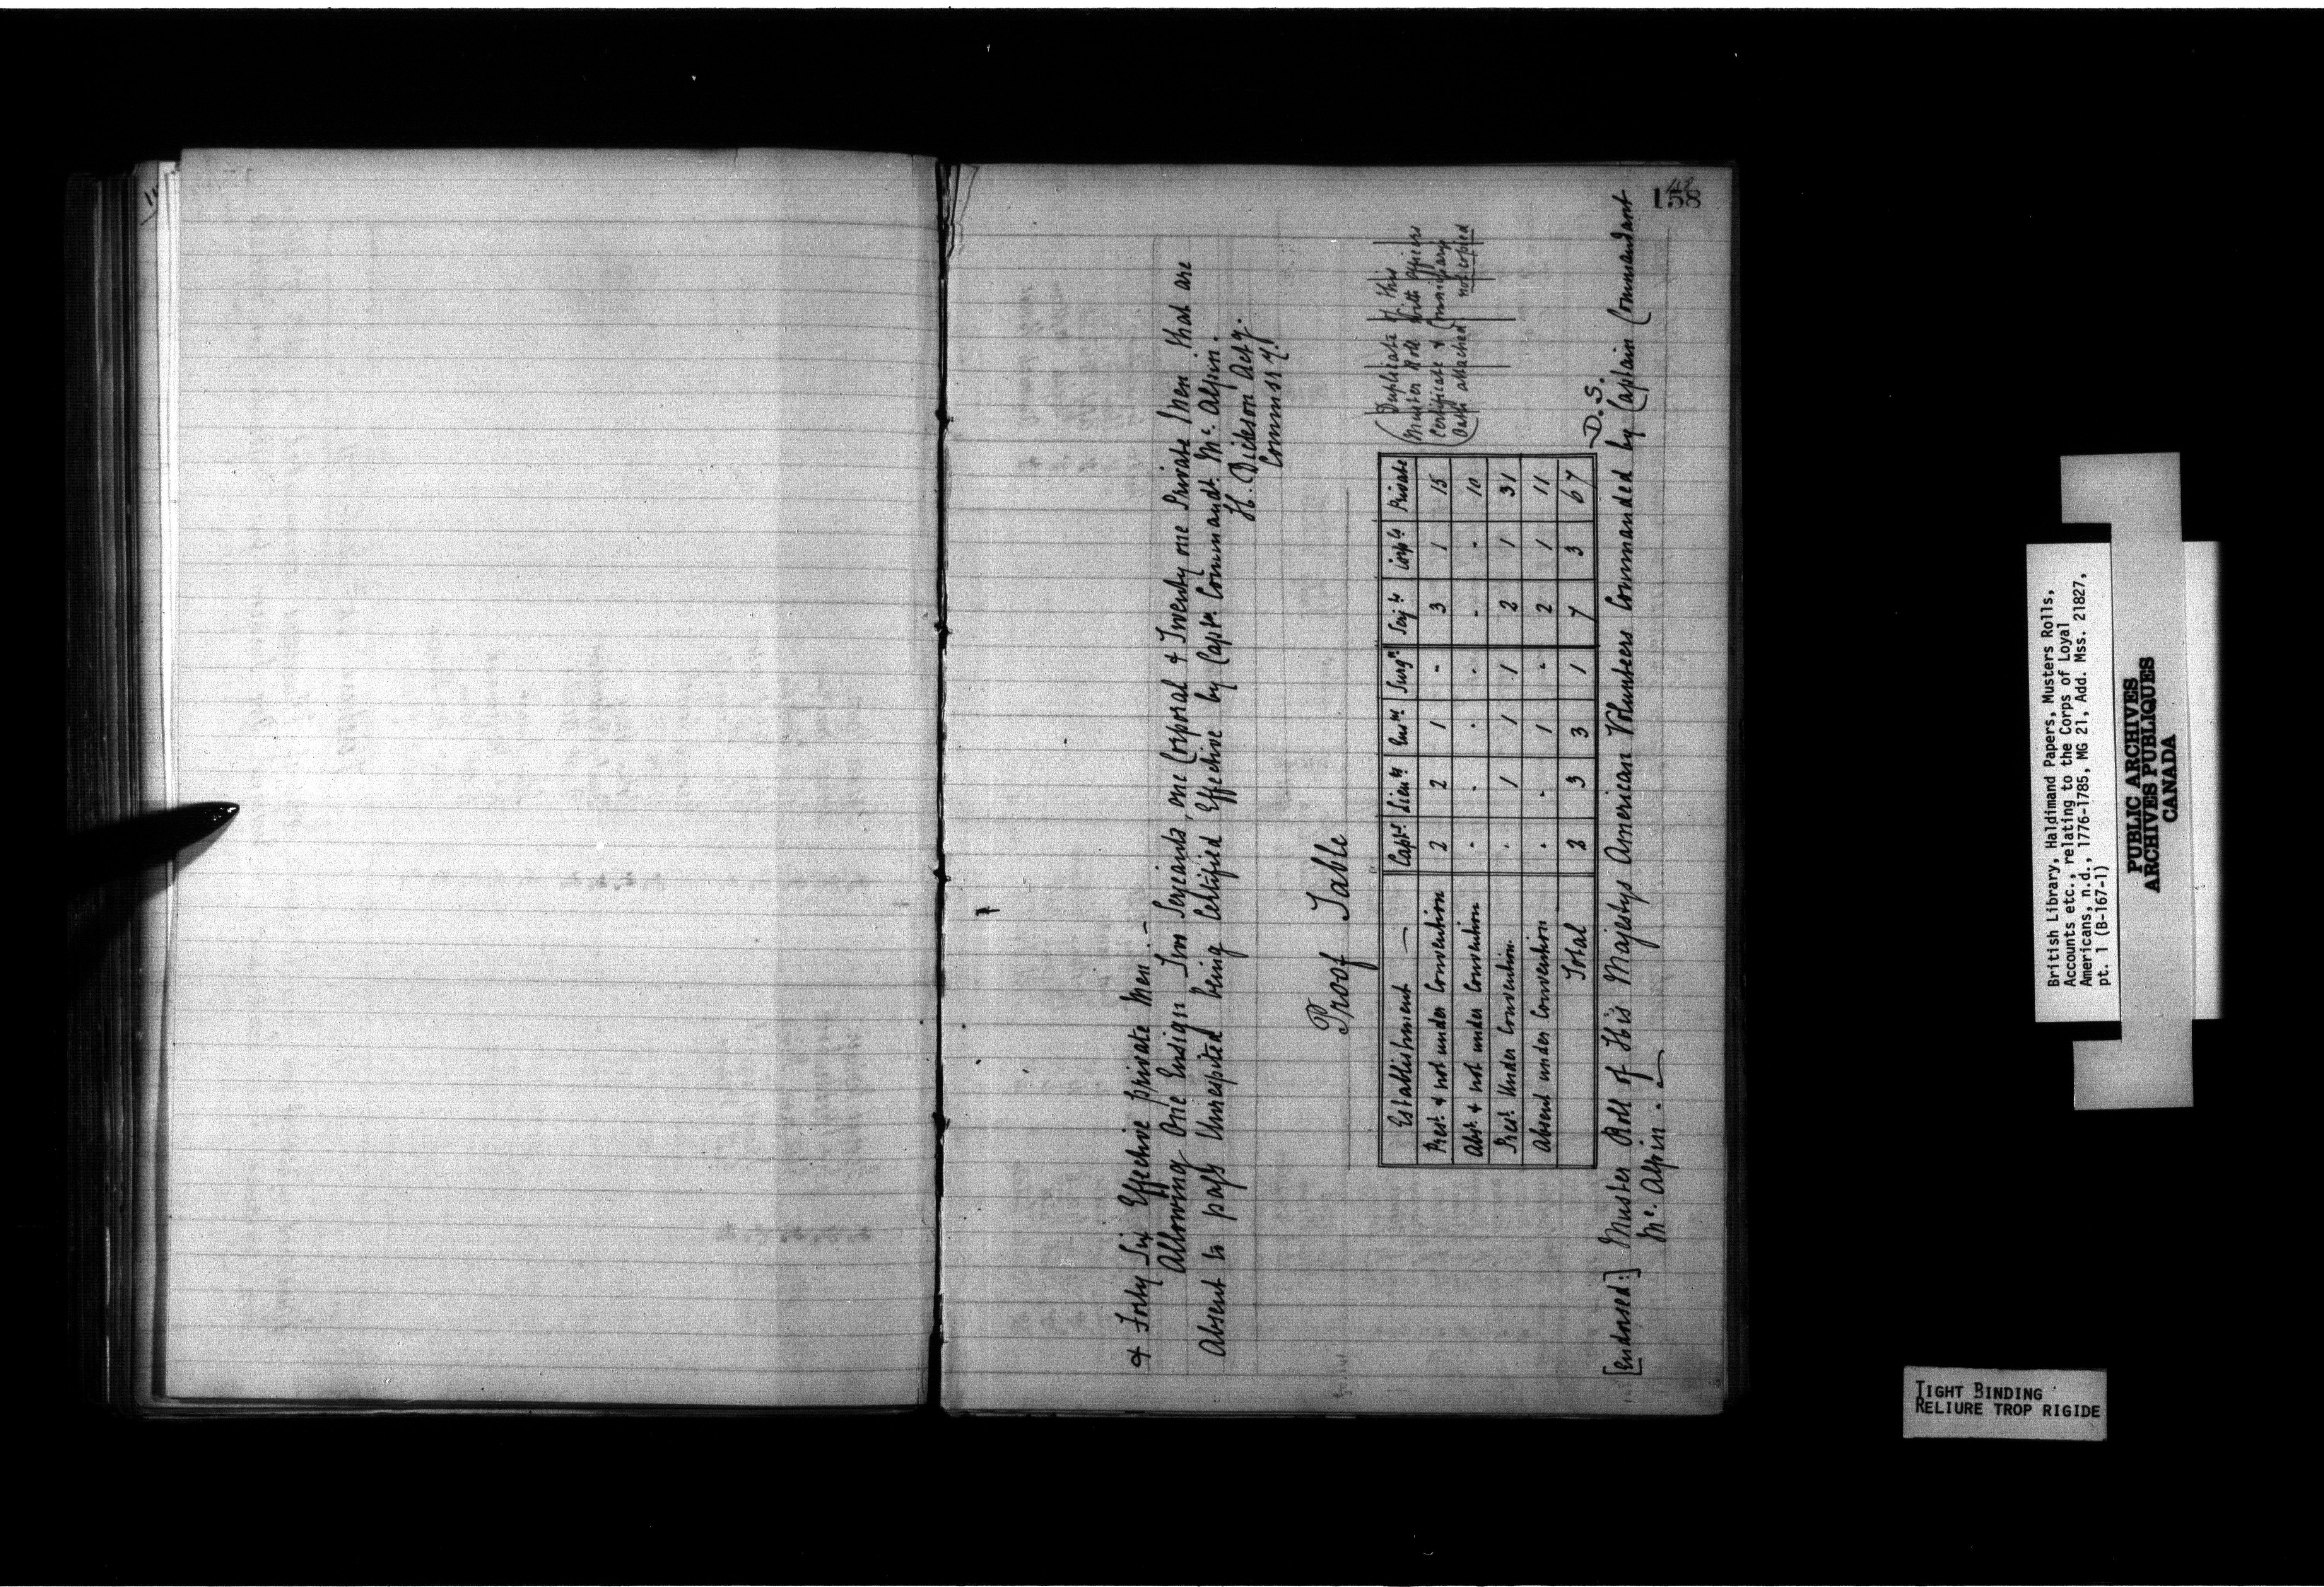 158
& Forty Six Effective private Men.-
Allowing One Ensign Two Serjeants, one Corporal & Twenty one Private Men that are
Absent to pass Unrespited being Certified Effective by Captn. Commandt. Mc. Alpin.
H. Dickson Actg.
Commissy.
Proof Table
(Duplicate of this
Muster Roll with officers
Certificate & Commissarys
Oath attached. not copied
Establishment — Captn. Lieuts Ensns Surgn Serjts Corpls Private
Prest. & not under Convention 2 2 1 - 3 1 15
Abst. & not under Convention . . . . - - 10
Prest. Under Convention. . 1 1 1 2 1 31
Absent under Convention . . 1 . 2 1 11
Total 2 3 3 1 7 3 67
D. S.
[Endorsed:] Muster Roll of His Majestys American Volunteers Commanded by Captain Commandant
Mc. Alpin.
British Library, Haldimand Papers, Musters Rolls,
Accounts etc., relating to the Corps of Loyal
Americans, n.d., 1776-1785, MG 21, Add. Mss. 21827,
pt. 1 (B-167-1)
PUBLIC ARCHIVES
ARCHIVES PUBLIQUES
CANADA
TIGHT BINDING
RELIURE TROP RIGIDE